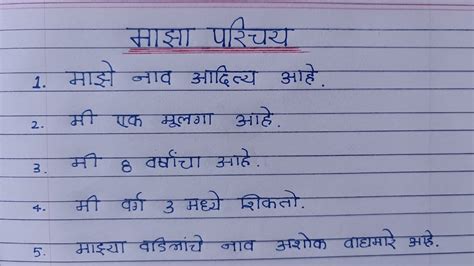 माझा परिचय
1. माझे नाव आदित्य आहे.
2. मी एक मूलगा आहे.
3. मी 8 वर्षाचा आहे.
4. मी वर्ग 3 मध्ये शिकतो.
5. माझ्या वडिलांचे नाव अशोक वाघमारे आहे.